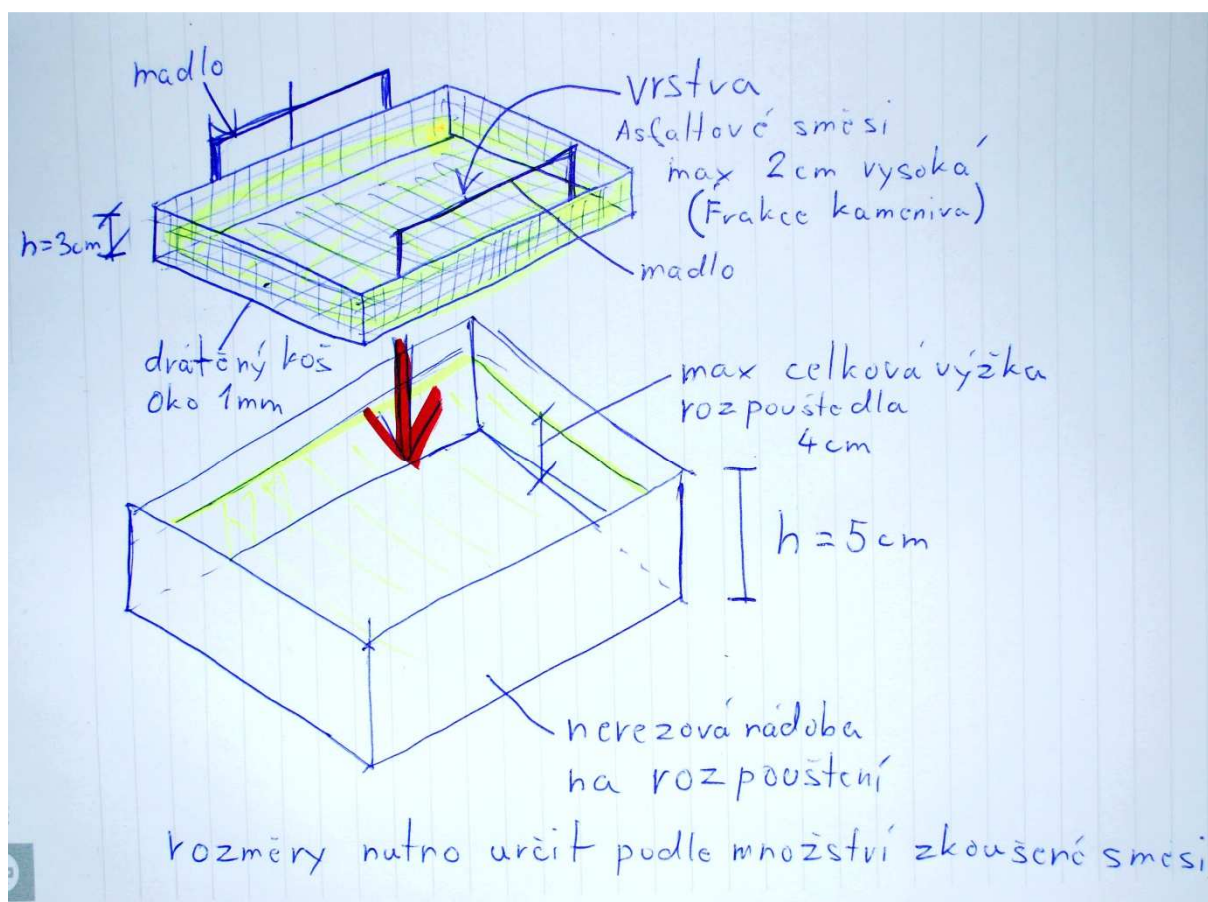 madlo
vrstva
Asfaltové směsi
max 2cm vysoká
(Frakce kameniva)
madlo
h=3cm
drátěný koš
Oko 1mm
max celková výžka
rozpouštedla
4cm
h = 5cm
nerezová nádoba
na rozpouštění
rozměry nutno určit podle množství zkoušené směsi